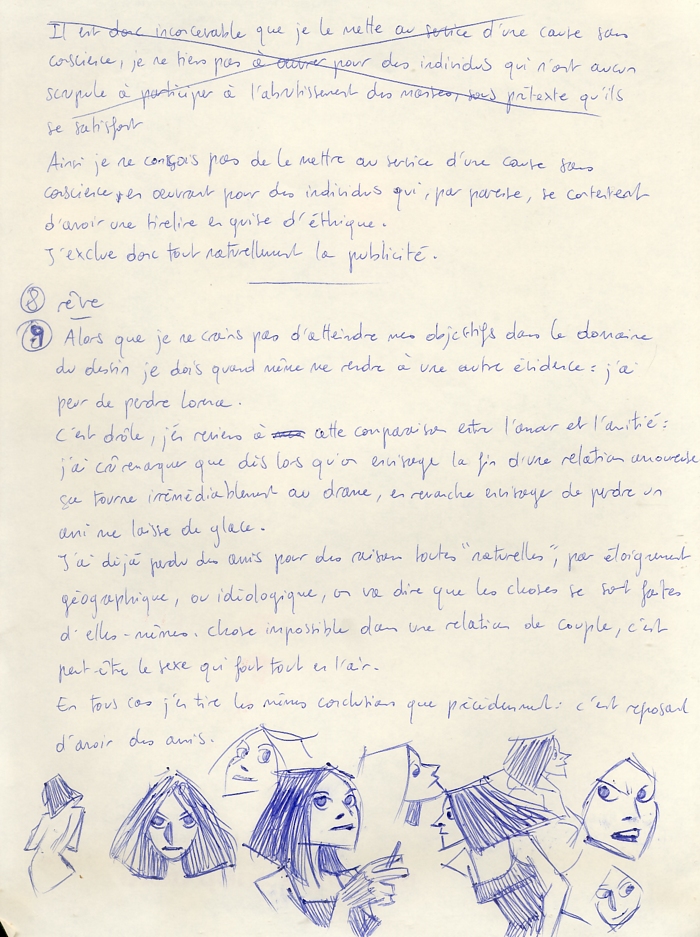 Il est donc inconcevable que je le mette au service d'une cause sans
conscience, je ne tiens pas à œuvrer pour des individus qui n'ont aucun
scrupule à participer à l'abrutissement des masses, sous prétexte qu'ils
se satisfont
Ainsi je ne conçois pas de le mettre au service d'une cause sans
conscience, en œuvrant pour des individus qui, par paresse, se contentent
d'avoir une tirelire en guise d'éthique.
J'exclue donc tout naturellement la publicité.
8 rêve
9 Alors que je ne crains pas d'atteindre mes objectifs dans le domaine
du dessin je dois quand même me rendre à une autre évidence : j'ai
peur de perdre Lorena.
C'est drôle, j'en reviens à cette comparaison entre l'amour et l'amitié :
j'ai crû remarquer que dès lors qu'on envisage la fin d'une relation amoureuse
ça tourne irrémédiablement au drame, en revanche envisager de perdre un
ami me laisse de glace.
J'ai déjà perdu des amis pour des raison toutes "naturelles", par éloignement
géographique, ou idéologique, on va dire que les choses se sont faites
d'elles-mêmes. Chose impossible dans une relation de couple, c'est
peut-être le sexe qui fout tout en l'air.
En tous cas j'en tire les mêmes conclusions que précédemment : c'est reposant
d'avoir des amis.